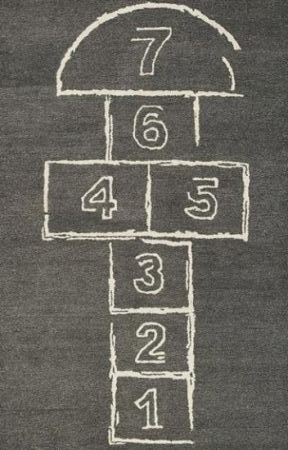 7
6
4 5
3
2
1